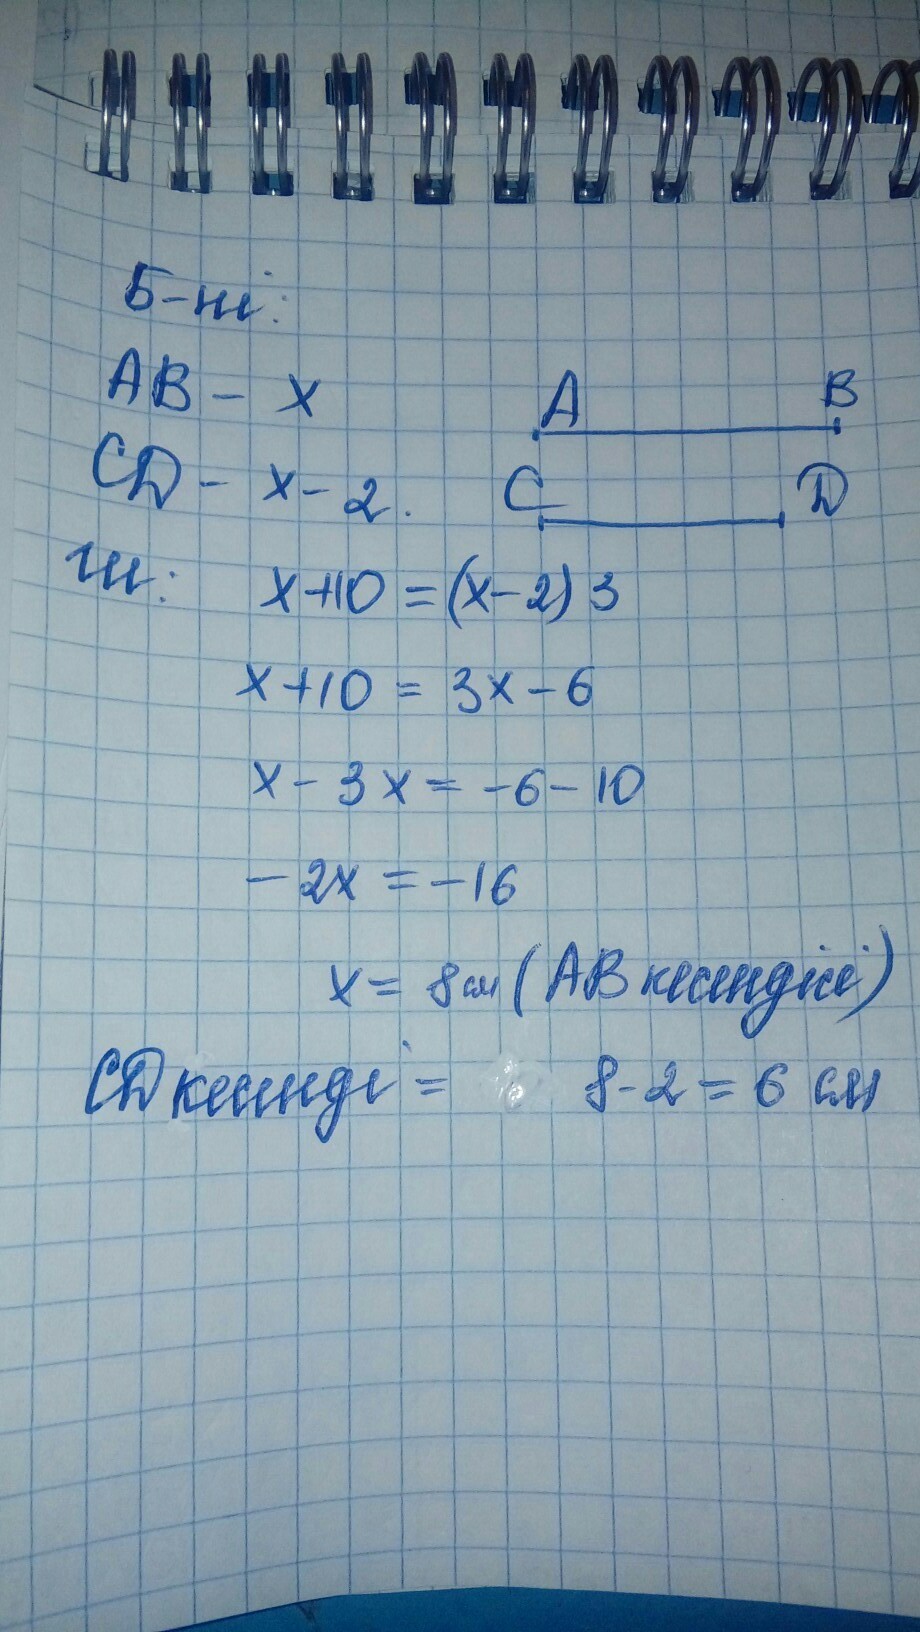 Б-ні:
AB - x
A B
CD - x - 2.
C D
ш:
x+10 = (x-2) 3
x+10 = 3x - 6
x - 3x = -6 - 10
- 2x = -16
x = 8 см (AB кесіндісі)
CD кесінді = 8-2 = 6 см